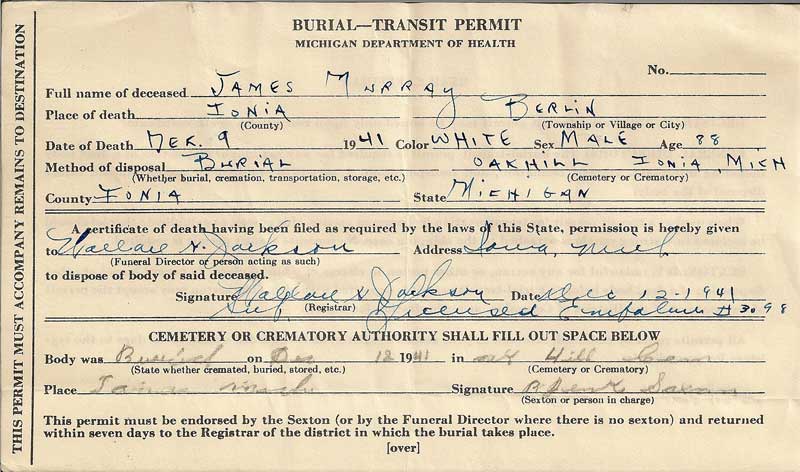 BURIAL—TRANSIT PERMIT
MICHIGAN DEPARTMENT OF HEALTH
No.
Full name of deceased JAMES MURRAY
Place of death IONIA BERLIN
(County) (Township or Village or City)
Date of Death DEK. 9 1941 Color WHITE Sex MALE Age 88
Method of disposal BURIAL OAKHILL IONIA, MICH
(Whether burial, cremation, transportation, storage, etc.) (Cemetery or Crematory)
County IONIA State MICHIGAN
A certificate of death having been filed as required by the laws of this State, permission is hereby given
to Wallace H. Jackson Address Ionia, Mich
(Funeral Director or person acting as such)
to dispose of body of said deceased.
Signature Wallace H. Jackson Date Dec 12-1941
(Registrar)
Sub Licensed Embalmer # 3098
CEMETERY OR CREMATORY AUTHORITY SHALL FILL OUT SPACE BELOW
Body was Buried on Dec 12 1941 in Oak Hill Cem
(State whether cremated, buried, stored, etc.) (Cemetery or Crematory)
Place Ionia Mich Signature
(Sexton or person in charge)
This permit must be endorsed by the Sexton (or by the Funeral Director where there is no sexton) and returned
within seven days to the Registrar of the district in which the burial takes place.
[over]
THIS PERMIT MUST ACCOMPANY REMAINS TO DESTINATION